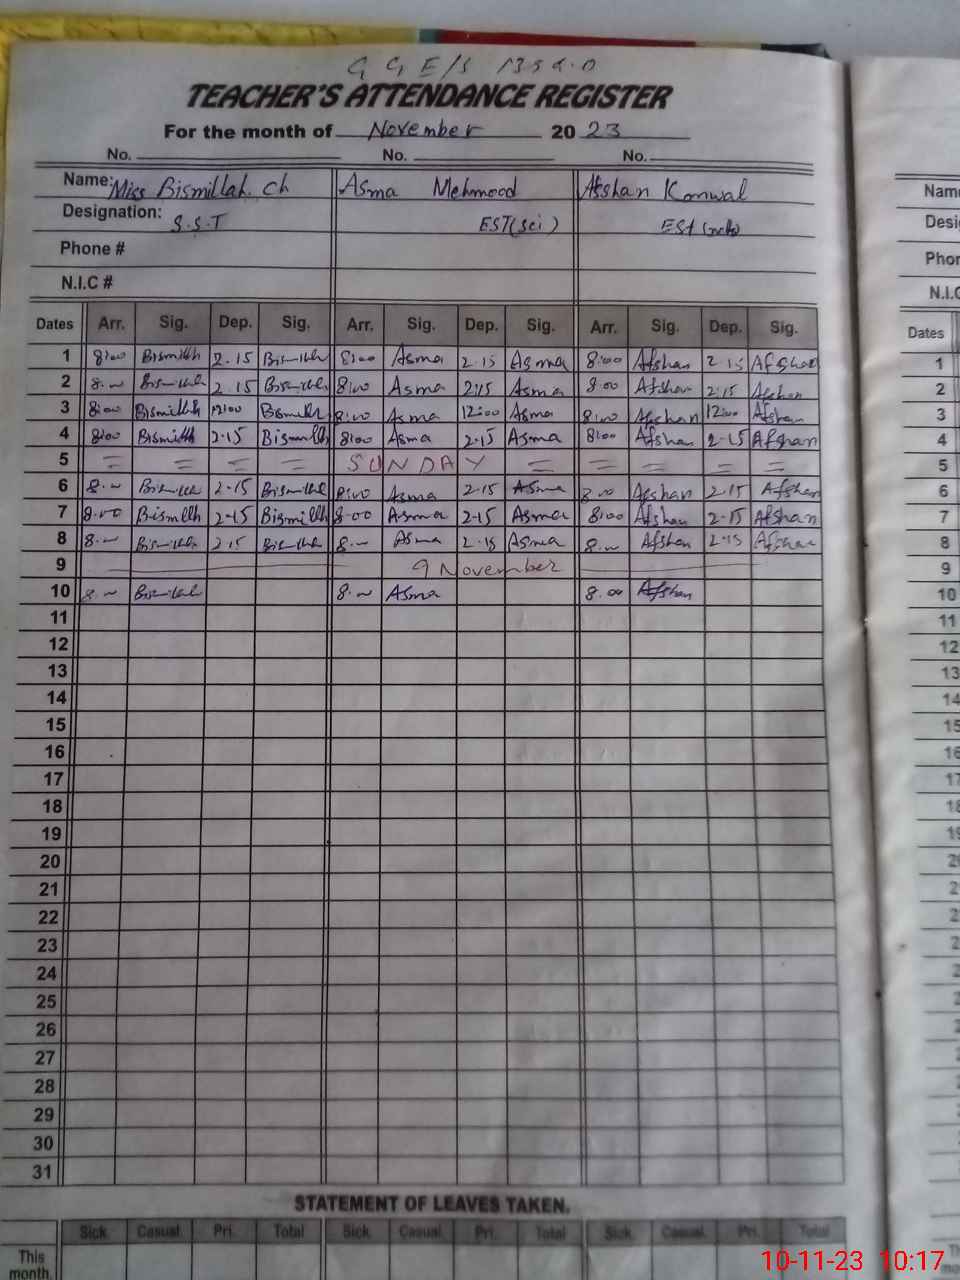 TEACHER'S ATTENDANCE REGISTER
For the month of November 20 23
No. No. No.
Name: Miss Bismillah. Ch Asma Mehmood Afshan Komwal
Designation: S.S.T EST(Sci) EST
Phone #
N.I.C #
Dates Arr. Sig. Dep. Sig. Arr. Sig. Dep. Sig. Arr. Sig. Dep. Sig.
1 8:00 Bismillh 2.15 Bismillh 8:00 Asma 2.15 Asma 8:00 Afshan 2.15 Afshan
2 8. Bismillh 2.15 Bismillh 8:00 Asma 2:15 Asma 8.00 Afshan 2.15 Afshan
3 8:00 Bismillh 12:00 Bismillh 8:00 Asma 12:00 Asma 8:00 Afshan 12:00 Afshan
4 8:00 Bismillh 2.15 Bismillh 8:00 Asma 2.15 Asma 8:00 Afshan 2.15 Afshan
5 = = = = SUNDAY = = = = =
6 8. Bismillh 2.15 Bismillh 8:00 Asma 2.15 Asma 8.00 Afshan 2.15 Afshan
7 8.00 Bismillh 2.15 Bismillh 8.00 Asma 2.15 Asma 8:00 Afshan 2.15 Afshan
8 8. Bismillh 2.15 Bismillh 8. Asma 2.15 Asma 8. Afshan 2.15 Afshan
9 9 November
10 8. Bismillh 8. Asma 8.00 Afshan
11
12
13
14
15
16
17
18
19
20
21
22
23
24
25
26
27
28
29
30
31
STATEMENT OF LEAVES TAKEN.
Sick. Casual. Pri. Total Sick. Casual. Pri. Total Sick. Casual. Pri. Total
This
month.
Dates
1
2
3
4
5
6
7
8
9
10
11
12
13
10-11-23 10:17